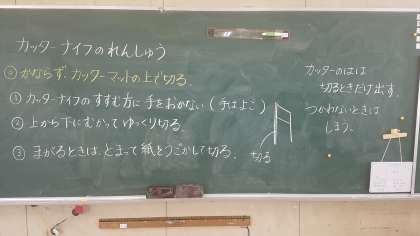 カッターナイフのれんしゅう
◎かならず、カッターマットの上で切る。
① カッターナイフのすすむ方に手をおかない(手はよこ)
② 上から下にむかってゆっくり切る。
③ まがるときは、とまって紙をうごかして切る。
切る
カッターのはは
切るときだけ出す。
つかわないときは
しまう。